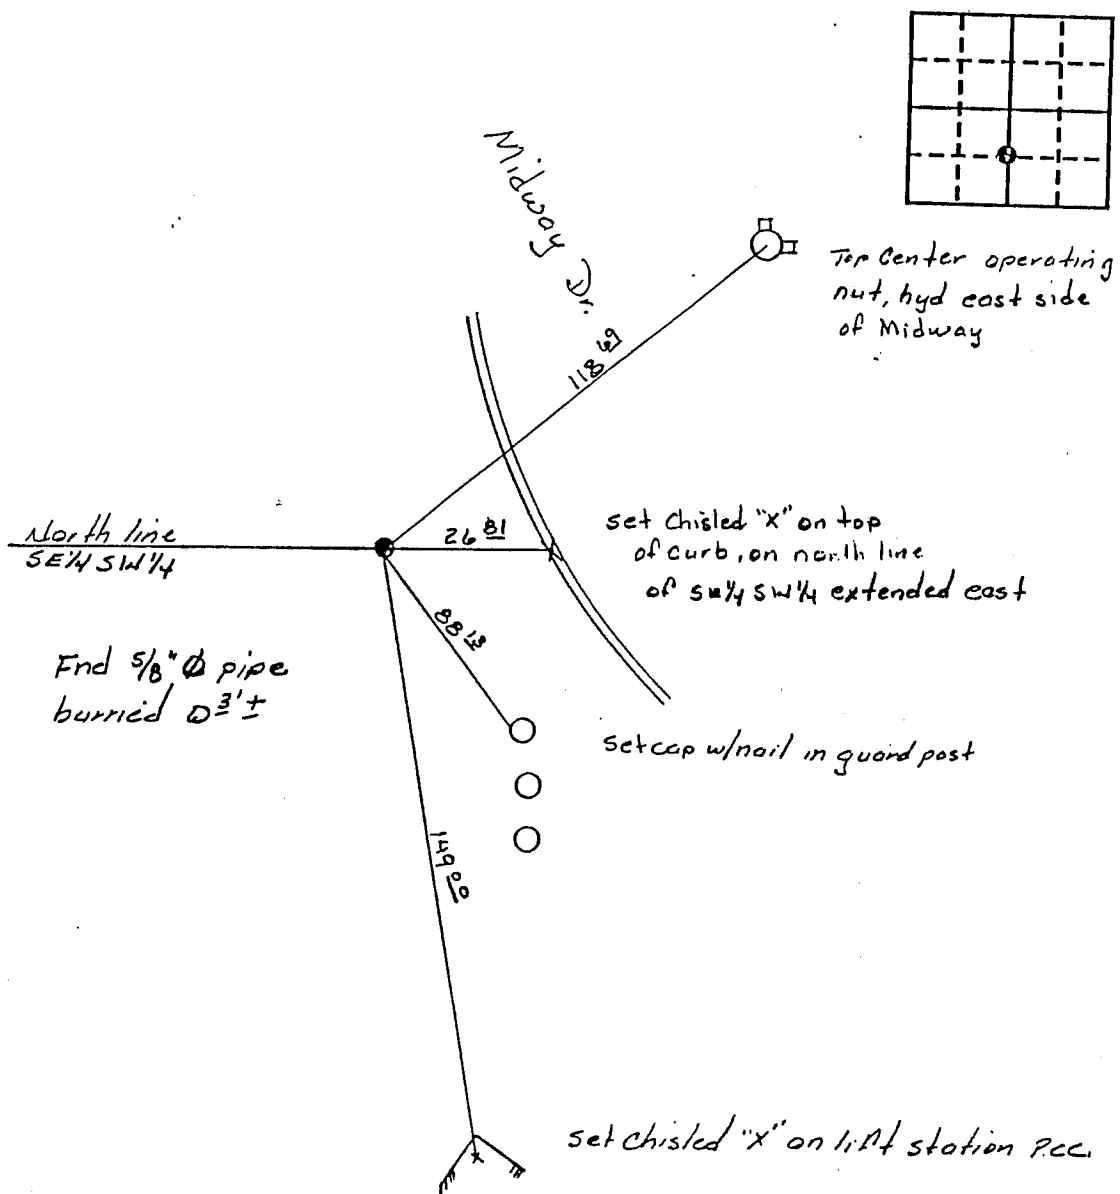 Midway Dr.
Top Center operating
nut, hyd east side
of Midway
118 69
North line
SE 1/4 SW 1/4
26 81
set Chisled "X" on top
of curb, on north line
of SE 1/4 SW 1/4 extended east
88 13
Fnd 5/8" Ø pipe
burried 0 3' ±
set cap w/nail in guard post
149 00
set Chisled "X" on lift station P.C.C.